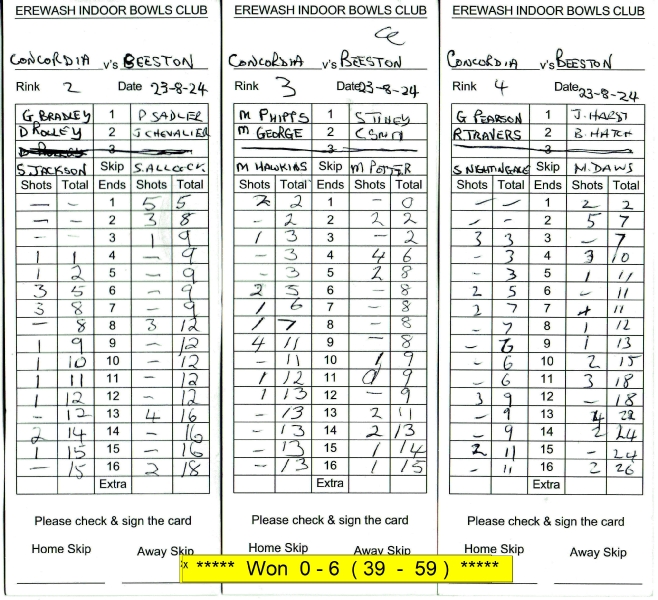 EREWASH INDOOR BOWLS CLUB
CONCORDIA v's BEESTON
Rink 2 Date 23-8-24
G BRADLEY 1 P SADLER
D ROLLEY 2 J CHEVALIER
3
S. JACKSON Skip S. ALLCOCK.
Shots Total Ends Shots Total
- - 1 5 5
- - 2 3 8
- - 3 1 9
1 1 4 - 9
1 2 5 - 9
3 5 6 - 9
3 8 7 - 9
- 8 8 3 12
1 9 9 - 12
1 10 10 - 12
1 11 11 - 12
1 12 12 - 12
- 12 13 4 16
2 14 14 - 16
1 15 15 - 16
- 15 16 2 18
Extra
Please check & sign the card
Home Skip Away Skip
EREWASH INDOOR BOWLS CLUB
CONCORDIA v's BEESTON
Rink 3 Date 23-8-24
M PHIPPS 1
M GEORGE 2
3
M HAWKINS Skip M POTTER
Shots Total Ends Shots Total
2 2 1 - 0
- 2 2 2 2
1 3 3 - 2
- 3 4 4 6
- 3 5 2 8
2 5 6 - 8
1 6 7 - 8
1 7 8 - 8
4 11 9 - 8
- 11 10 1 9
1 12 11 0 9
1 13 12 - 9
- 13 13 2 11
- 13 14 2 13
- 13 15 1 14
- 13 16 1 15
Extra
Please check & sign the card
Home Skip Away Skip
EREWASH INDOOR BOWLS CLUB
CONCORDIA v's BEESTON
Rink 4 Date 23-8-24
G PEARSON 1 J. HARDY
R. TRAVERS 2 B. HATCH
3
S NIGHTINGALE Skip M. DAWS
Shots Total Ends Shots Total
- - 1 2 2
- - 2 5 7
3 3 3 - 7
- 3 4 3 10
- 3 5 1 11
2 5 6 - 11
2 7 7 11
- 7 8 1 12
- 6 9 1 13
- 6 10 2 15
- 6 11 3 18
3 9 12 - 18
- 9 13 4 22
- 9 14 2 24
2 11 15 - 24
- 11 16 2 26
Extra
Please check & sign the card
Home Skip Away Skip
***** Won 0 - 6 ( 39 - 59 ) *****